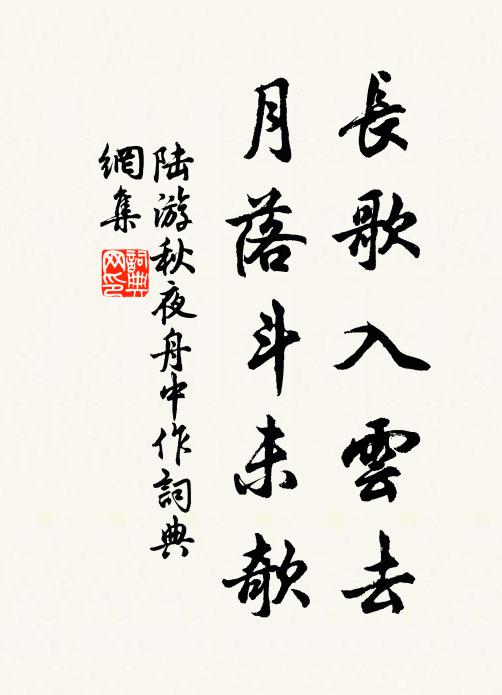 長歌入雲去
月落斗未欹
陆游秋夜舟中作詞典
網集
詞典
网印